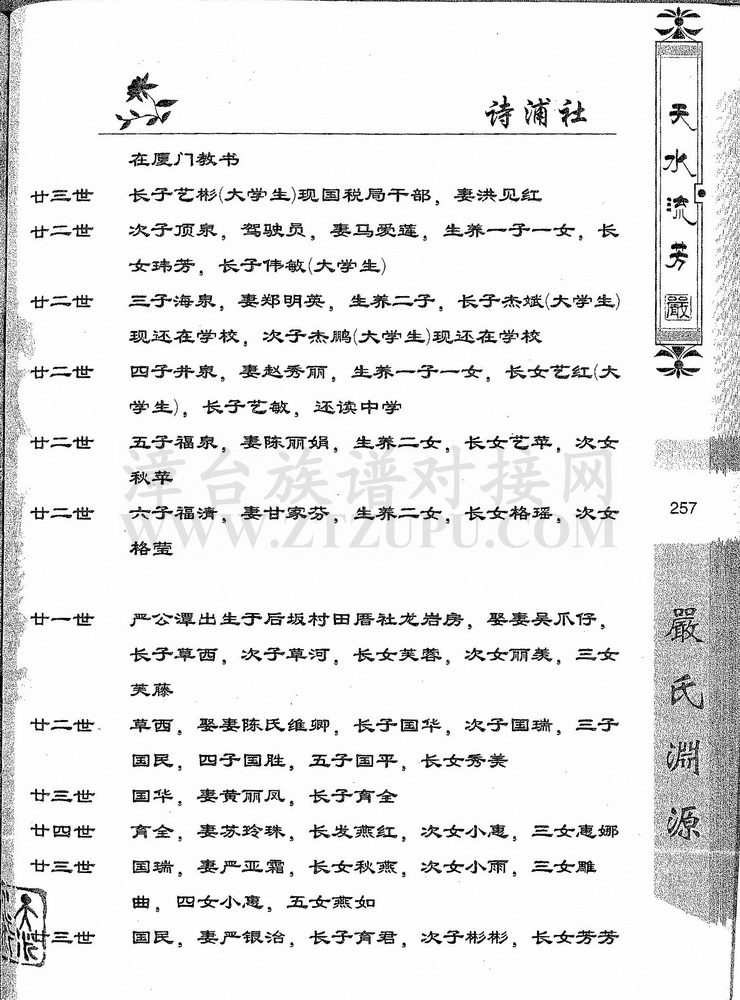 诗浦社
在厦门教书
廿三世 长子艺彬(大学生)现国税局干部，妻洪见红
廿二世 次子顶泉，驾驶员，妻马爱莲，生养一子一女，长
女玮芳，长子伟敏(大学生)
廿二世 三子海泉，妻郑明英，生养二子，长子杰斌(大学生)
现还在学校，次子杰鹏(大学生)现还在学校
廿二世 四子井泉，妻赵秀丽，生养一子一女，长女艺红(大
学生)，长子艺敏，还读中学
廿二世 五子福泉，妻陈丽娟，生养二女，长女艺苹，次女
秋苹
廿二世 六子福清，妻甘家芬，生养二女，长女格瑶，次女
格莹
廿一世 严公潭出生于后坂村田厝社龙岩房，娶妻吴爪仔，
长子草西，次子草河，长女芙蓉，次女丽羡，三女
芙藤
廿二世 草西，娶妻陈氏维卿，长子国华，次子国瑞，三子
国民，四子国胜，五子国平，长女秀美
廿三世 国华，妻黄丽凤，长子育全
廿四世 育全，妻苏玲珠，长发燕红，次女小惠，三女惠娜
廿三世 国瑞，妻严亚霜，长女秋燕，次女小雨，三女雕
曲，四女小惠，五女燕如
廿三世 国民，妻严银治，长子育君，次子彬彬，长女芳芳
天水流芳
嚴
257
嚴氏淵源
漳台族谱对接网
WWW.ZTZUPU.COM